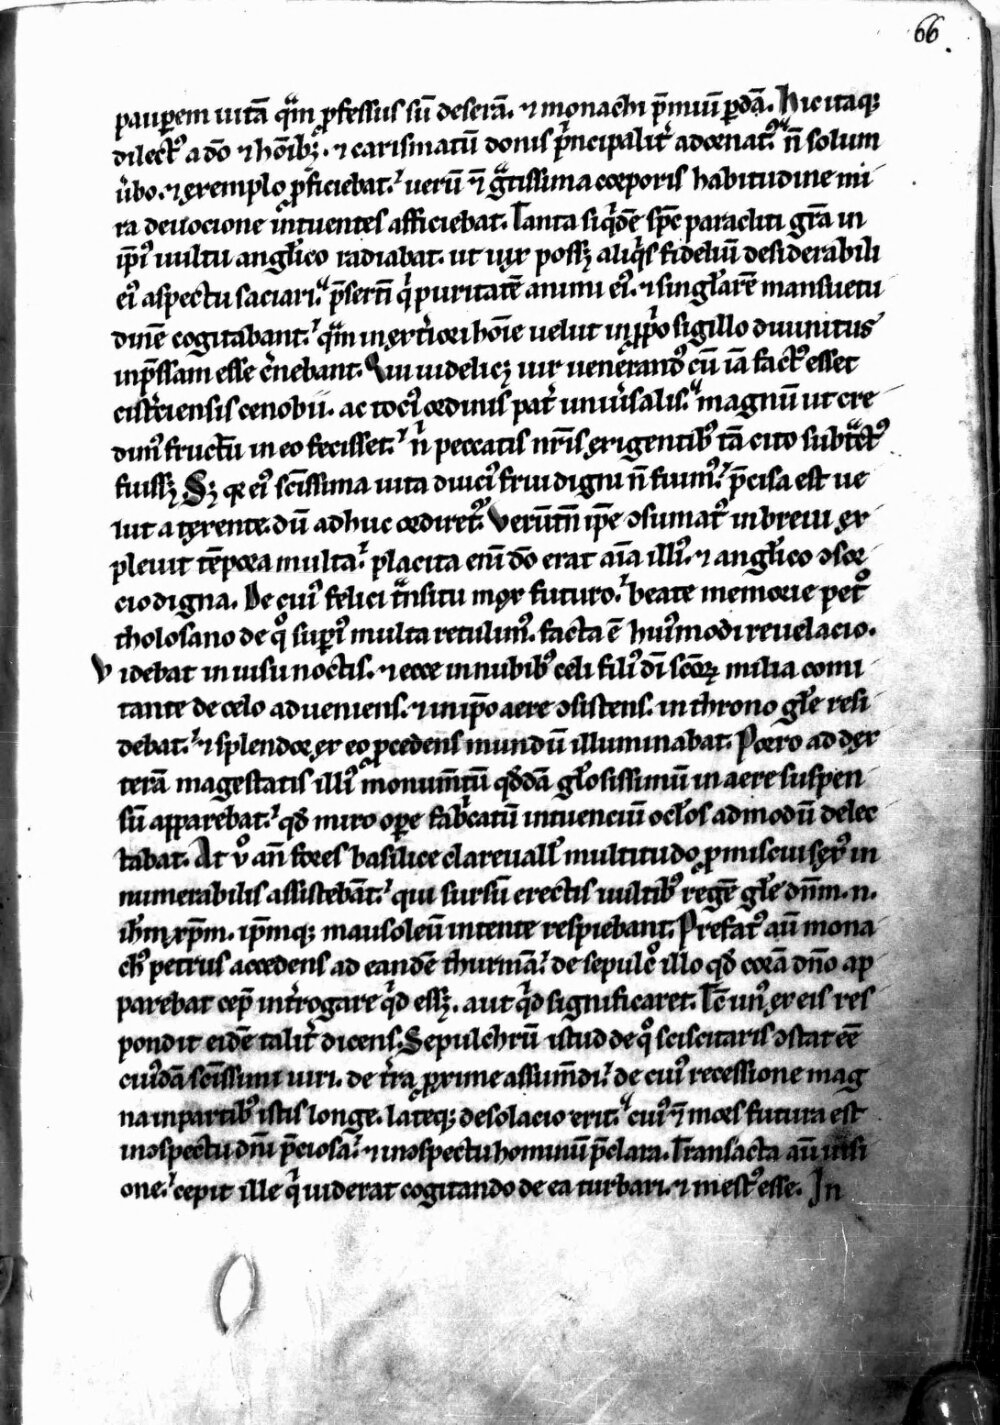 66
pauꝑem uitā qͣm ꝓfessus sū deserā. ⁊ monachi p̄miū ꝑdā. Hic itaq;
dilectꝰ a dō ⁊ hōibꝫ. ⁊ carismatū donis pͥncipalit᷑ adornatꝰ. n̄ solum
ůbo. ⁊ exemplo ꝓficiebat. uerū ⁊ gͣtissima corporis habitudine mi
ra deuocione intuentes afficiebat. Tanta siqͥdē sp̄c paracliti gr̄a in
ip̄iꝰ uultu angl̓ico radiabat. ut uix possꝫ aliqͥs fideliū desiderabili
eiꝰ aspectu saciari. p̄sertī qͥ puritatē animi eiꝰ. ⁊ singl̓arē mansuetu
dinē cogitabant. qͣm in ext̓iori hoīe uelut in ꝓpͥo sigillo diuinitus
inp̄ssam esse c̓nebant. Qui uidelicꝫ uir uenerandꝰ cū iā factꝰ esset
cist̓ciensis cenobii. ac tociꝰ ordinis pat᷑ uniůsalis. magnū ut cre
dimꝰ fructū in eo fecisset. nͥ peccatis nr̄is exigentibꝰ tā cito subtͣctꝰ
fuissꝫ Sꝫ qꝛ eiꝰ sc̄issima uita diuciꝰ frui digni n̄ fuimꝰ. p̄cisa est ue
lut a texente. dū adhuc ordiretꝰ. Verūtn̄ ip̄e ↄsūmatꝰ in breui ex
pleuit tēpora multa. placita eni dō erat aīa illiꝰ. ⁊ angl̓ico ↄsor
cio digna. De cuiꝰ felici tͣnsitu mox futuro. beate memorie petꝰ
tholosano de qͦ supiꝰ multa retulimꝰ. facta ē huiꝰmodi reuelacio.
Videbat in uisu noctis. ⁊ ecce in nubibꝰ celi filiꝰ dī sc̄oꝝ milia comi
tante de celo adueniens. ⁊ in ip̄o aere ↄsistens. in throno gl̓e resi
debat. ⁊ splendor ex eo ꝓcedens mundū illuminabat. Porro ad dex
terā magestatis illiꝰ monum̄tū qd̓dā gl̓osissimū in aere suspen
sū apparebat. qd̓ miro oꝑe fab̓catū intuenciū ocl̓os admodū delec
tabat. At ůo an̄ fores basilice clareuall̓ multitudo ꝓmiscui sexꝰ in
numerabilis assistebāt. qui sursū erectis uultibꝰ regē gl̓e dn̄m. n.
ih̄m xp̄m. ip̄mq; mausoleū intente respiciebant. Prefatꝰ aū mona
chꝰ petrus accedens ad eandē thurmā. de sepulcͦ illo qd̓ corā dn̄o ap
parebat cep̄ int̓rogare qͥd essꝫ. aut qͥd significaret. Tc̄ unꝰ ex eis res
pondit eidē talit᷑ dicens. Sepulchrū istud de qͦ sciscitaris ↄstat eē
cuiꝰdā sc̄issimi uiri. de t̓ra ꝓxime assum̄di. de cuiꝰ recessione mag
na in partibꝰ istis longe. lateq; desolacio erit. cuiꝰ ⁊ mors futura est
in ↄspectu dn̄i p̄ciosa. ⁊ in ↄspectu hominū p̄clara. Transacta aū uisi
one. cepit ille qͥ uiderat cogitando de ea turbari. ⁊ mestꝰ esse. In